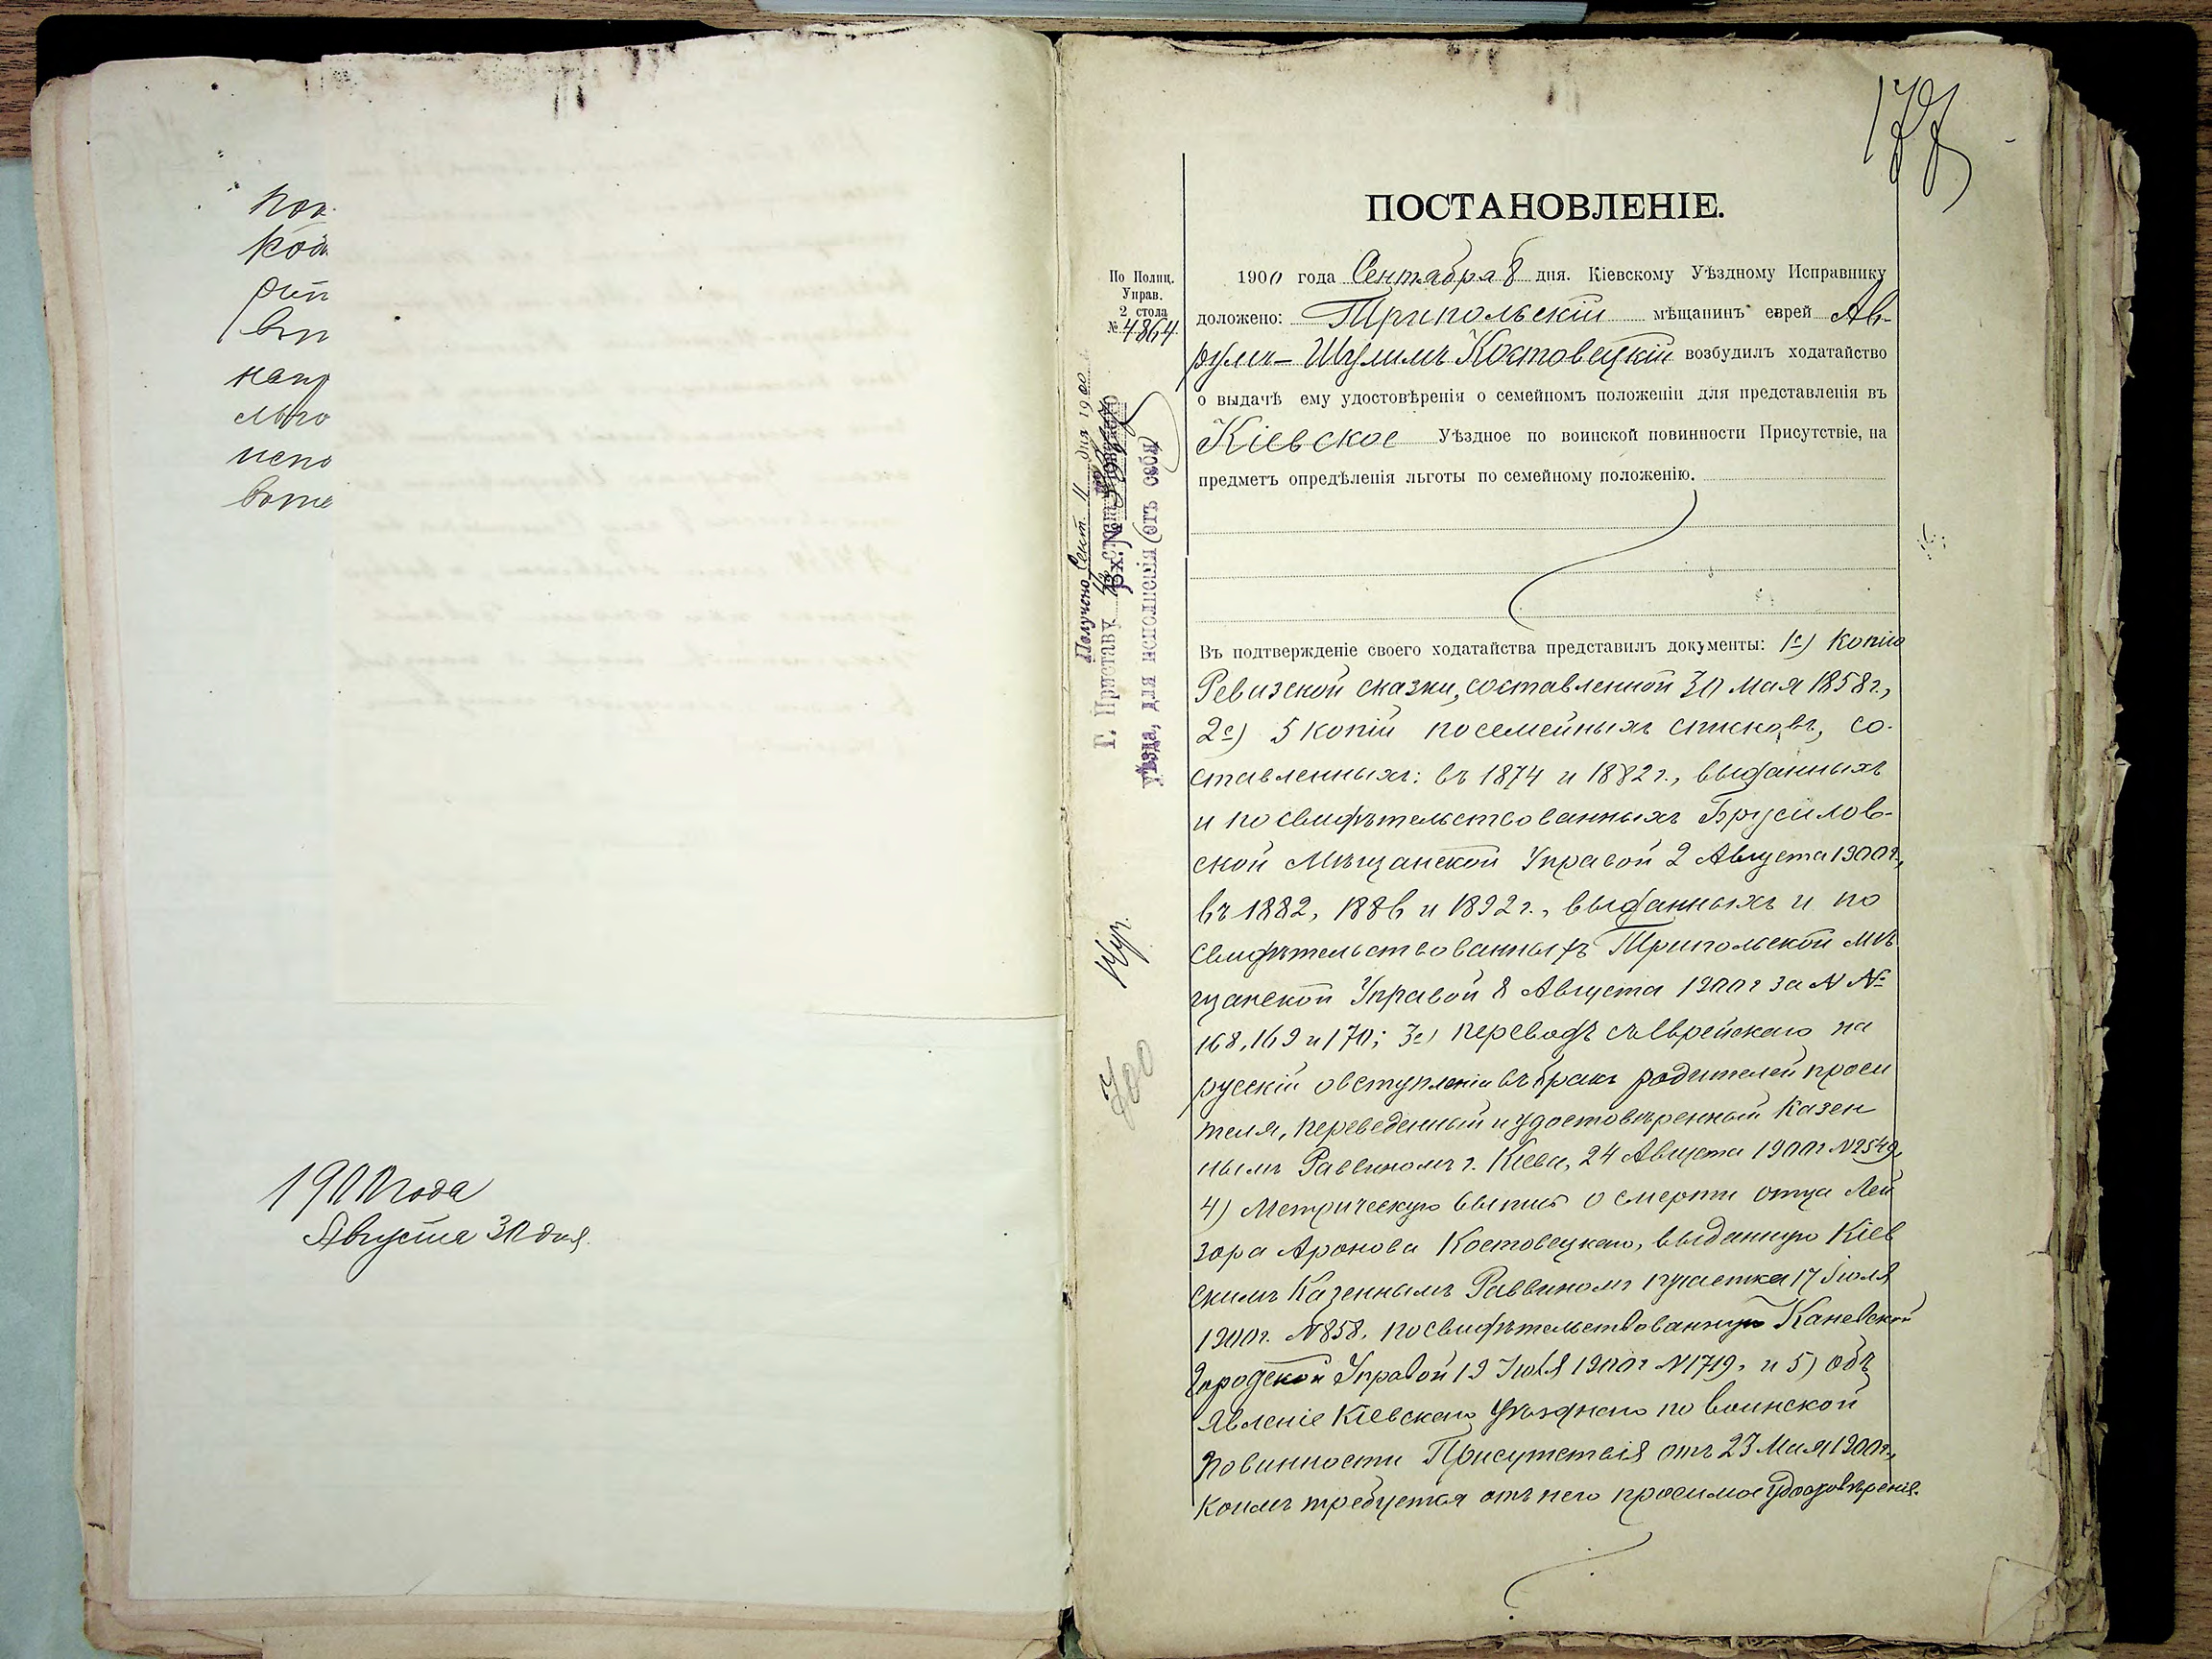 пов
1900 года
Августа 30 дня.
177
ПОСТАНОВЛЕНІЕ.
По Полиц.
Управ.
2 стола
№ 4864.
1900 года Сентября 8 дня. Кіевскому Уѣздному Исправнику
доложено: Трипольскій мѣщанинъ еврей Ав-
румъ-Шулимъ Костовецкій возбудилъ ходатайство
о выдачѣ ему удостовѣренія о семейномъ положеніи для представленія въ
Кіевское Уѣздное по воинской повинности Присутствіе, на
предметъ опредѣленія льготы по семейному положенію.
Получено Сент. 11 дня 1900
Г. Приставу
Вх. №
уѣзда, для исполненія (отъ себя)
Въ подтвержденіе своего ходатайства представилъ документы: 1е) копію
Ревизской сказки, составленной 30 Мая 1858 г.,
2е) 5 копій посемейныхъ списковъ, со-
ставленныхъ: въ 1874 и 1882 г., выданныхъ
и посвидѣтельствованныхъ Брусилов-
ской Мѣщанской Управой 2 Августа 1900 г.,
въ 1882, 1886 и 1892 г., выданныхъ и по
свидѣтельствованныхъ Трипольской мѣ
щанской Управой 8 Августа 1900 г за № №
168, 169 и 170; 3е) переводъ съ еврейскаго на
русскій о вступленіи въ бракъ родителей проси
теля, переведенный и удостовѣренный Казен
нымъ Раввиномъ г. Кіева, 24 Августа 1900 г № 2549,
4) Метрическую выпись о смерти отца Лей
зора Аронова Костовецкаго, выданную Кіев
скимъ Казеннымъ Раввиномъ 1 участка 17 Іюля
1900 г. № 858, посвидѣтельствованную Каневской
Городской Управой 19 Іюля 1900 г № 1719, и 5) объ
явленіе Кіевскаго Уѣзднаго по воинской
повинности Присутствія отъ 23 Мая 1900 г.,
коимъ требуется отъ него просимое удостовѣреніе.
400